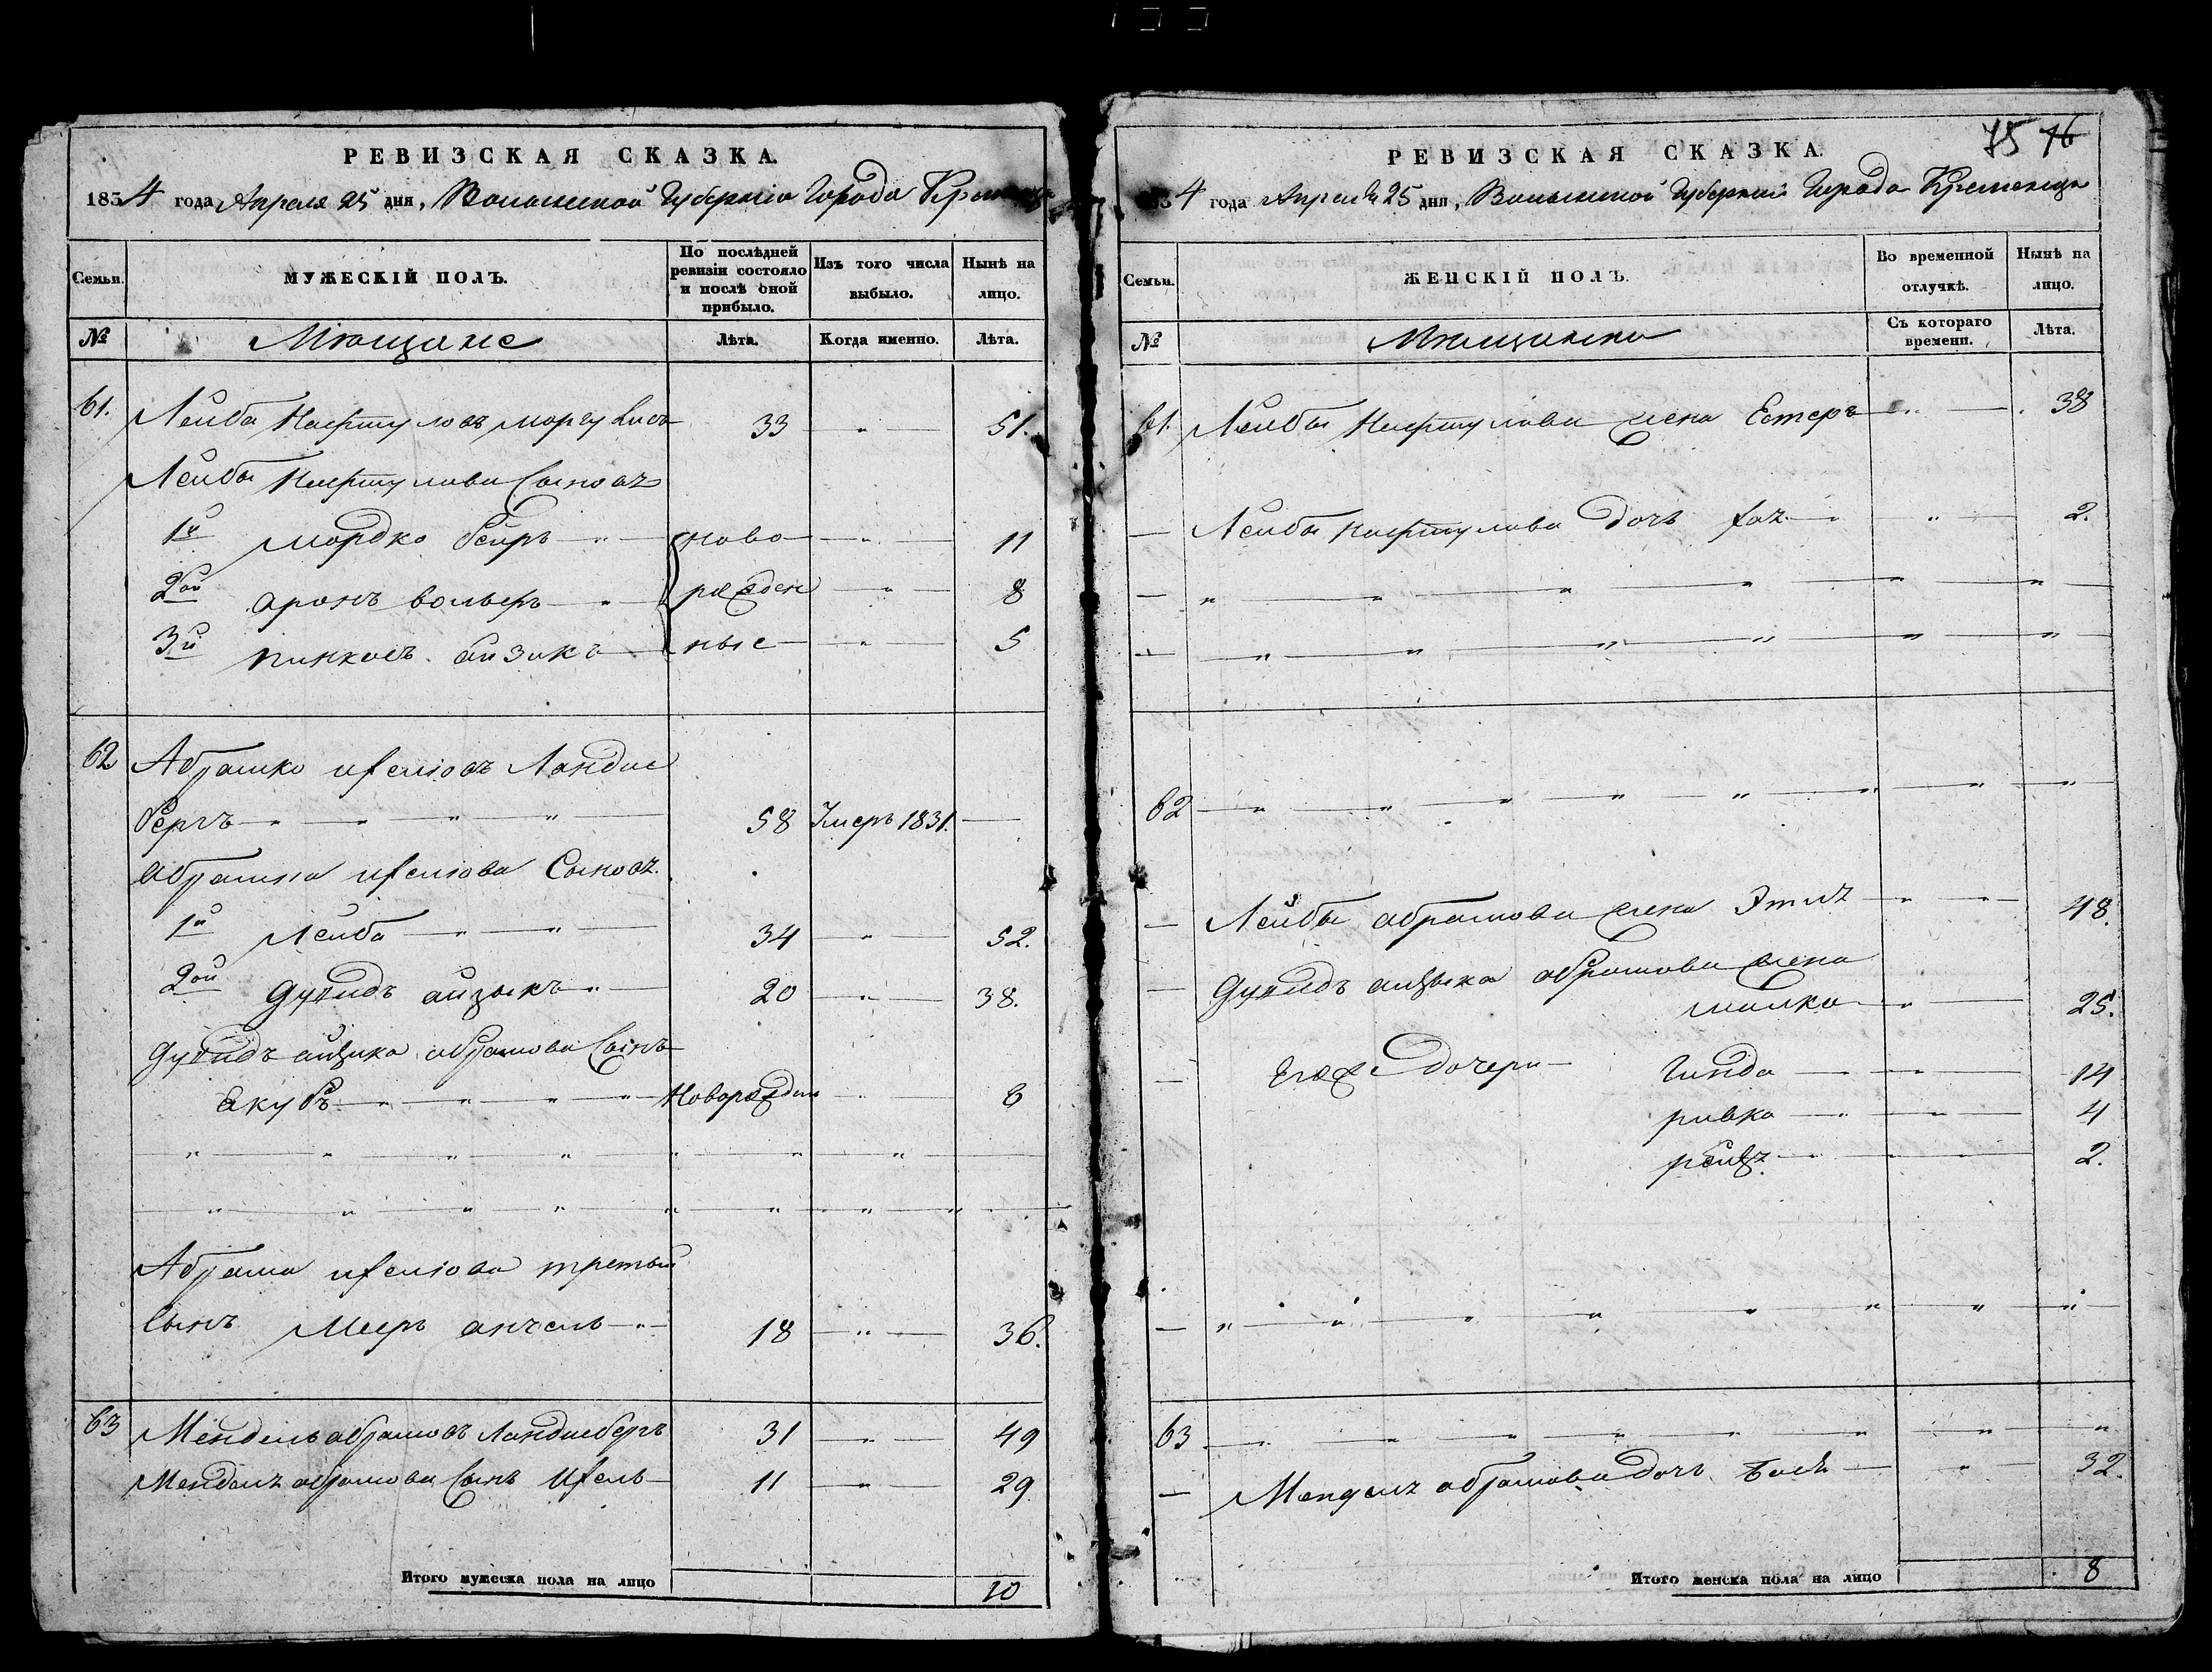 РЕВИЗСКАЯ СКАЗКА.
1834 года Апреля 25 дня, Волынской Губерніи Города Кременца
Семьи.
МУЖЕСКІЙ ПОЛЪ.
По послѣдней ревизіи состояло и послѣ оной прибыло.
Изъ того числа выбыло.
Нынѣ на лицо.
№
Мѣщане
Лѣта.
Когда именно.
Лѣта.
61. Лейба Нафтуловъ 33 51.
Лейбы Нафтулова Сыновъ
1й Мордко Беиръ ново 11
2ой аронъ вольфъ рожден 8
3й пинхасъ айзикъ ные 5
62 Абрашко Іоселіовъ Ландис
бергъ 58 Умеръ 1831.
Абрашка Іоселіова Сыновъ.
1й Лейба 34 52.
2ой Дувидъ айзыкъ 20 38.
Дувидъ айзика абрамова Сынъ
Якубъ Новорожден 6
Абрама Іоселіова третьй
Сынъ Мееръ анчель 18 36.
63 Мендель абрамовъ Ландисбергъ 31 49
Мендель абрамова Сынъ Іосель 11 29
Итого мужеска пола на лицо 10
75 76
РЕВИЗСКАЯ СКАЗКА.
4 года Апреля 25 дня, Волынской Губерніи Города Кременца
Семьи.
ЖЕНСКІЙ ПОЛЪ.
Во временной отлучкѣ.
Нынѣ на лицо.
№
Мѣщанки
Съ котораго времени.
Лѣта.
61. Лейбы Нафтулова жена Естеръ 38
Лейбы Нафтулова дочь 2.
62
Лейбы абрамова жена Этль 48.
Дувидъ айзыка абрамова жена
малка 25.
Его же дочери Гинда 14
ривка 4
рейзъ. 2.
63
Мендель абрамова дочь Бася 32.
Итого женска пола на лицо 8